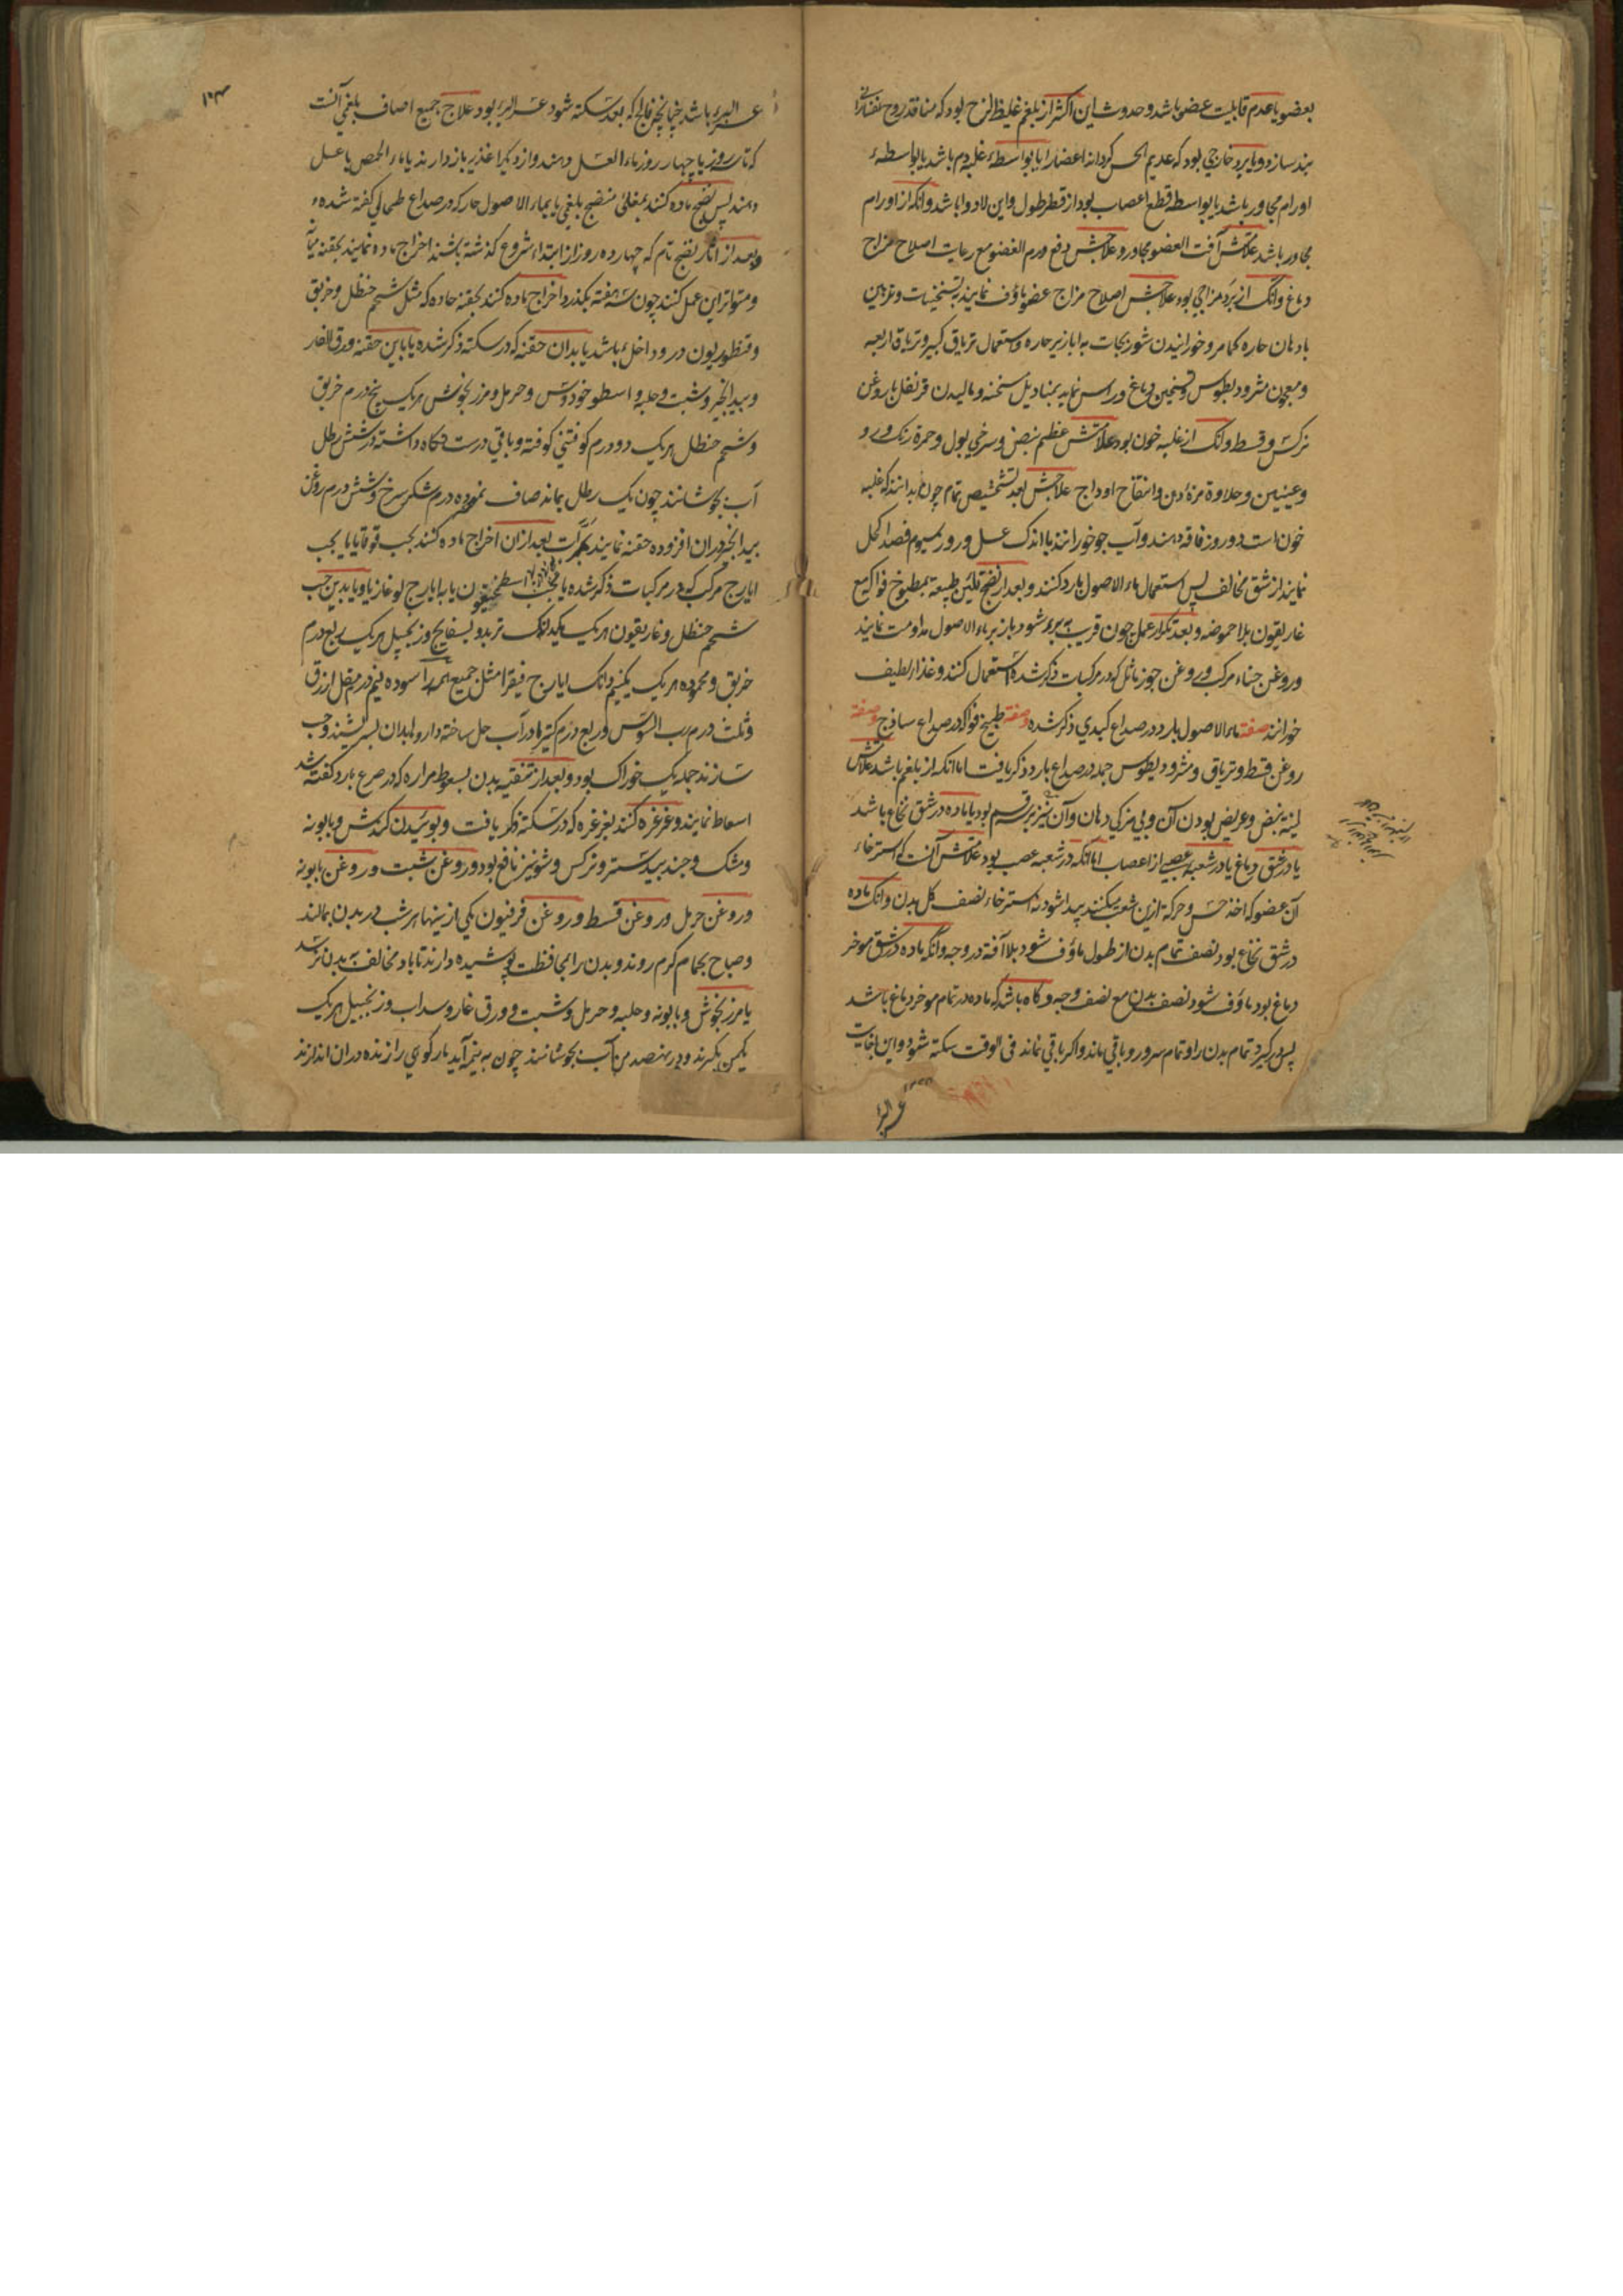 بعضو یا عدم قابلیت عضو باشد و حدوث این اکثر از بلغم غلیظ لزج بود که منافذ روح نفسانی را
بند سازد و یا برد خارجی بود که عدیم الحس کرداند اعضا را یا بواسطهٔ غلبهٔ دم باشد یا بواسطهٔ
اورام مجاور باشد یا بواسطه قطع اعصاب بود از قطر طول و این لادوا باشد و آنکه از اورام
مجاور باشد علامتش آفت العضو مجاور و علاجش دفع ورم العضو مع رعایت اصلاح مزاج
دماغ و آنک از برد مزاجی بود علاجش اصلاح مزاج عضو ماؤف نمایند به تسخینات و تدهین
بادهان حاره کمامر و خورانیدن شوربجات به ابازیر حاره و استعمال تریاق کبیر و تریاق اربعه
و معجون مثرودیطوس و تسخین دماغ و راس نماید بمنادیل مسخنه و مالیدن قرنفل با روغن
نرکس و قسط و آنک از غلبه خون بود علامتش عظم نبض و سرخی بول و حمرة رنک و رو
و عینین و حلاوة مزهٔ دهن و انتفاخ اوداج علاجش بعد تشخیص تمام چون بدانند که غلبه
خون است دو روز فاقه دهند و آب جو خورانند با اندک عسل و روز سیوم فصد اکحل
نمایند از شق مخالف پس استعمال ماء الاصول بارد کنند و بعد از نضج تلئین طبیعة بمطبوخ فواکه مع
غاریقون بلا حموضه و بعد تکرار عمل چون قریب به برء شود باز بر ماء الاصول مداومت نمایند
و روغن حناء مرکب و روغن جوز ماثل که در مرکبات ذکر شده استعمال کنند و غذا لطیف
خورانند صفة ماء الاصول بارد در صداع کبدی ذکر شده و صفة طبیخ فواکه در صداع ساذج و صفة
روغن قسط و تریاق و مثرودیطوس جمله در صداع بارد ذکر یافت اما آنکه از بلغم باشد علامتش
لینة نبض و عریض بودن آن و بی مزکی دهان و آن نیز بر قسم بود یا ماده در شق نخاع باشد
یا در شق دماغ یا در شعبه عصبی از اعصاب اما آنکه در شعبه عصب بود علامتش آنست که استرخاء
آن عضو که اخذ حس و حرکة ازین شعب میکنند پیدا شود نه استرخاء نصف کل بدن و آنک ماده
در شق نخاع بود نصف تمام بدن از طول ماؤف شود بلا آفة در وجه و آنکه ماده در شق موخر
دماغ بود ماؤف شود نصف بدن مع نصف وجه و کاه باشد که ماده در تمام موخر دماغ باشد
پس کیرد تمام بدن را و تمام سر و رو باقی ماند و اکر باقی نماند فی الوقت سکته شود و این بغایت
عسر البرء
عسر البرء باشد چنانچه فالج که بعد سکته شود عسر البرء بود علاج جمیع اصناف بلغمی آنست
که تا سه روز یا چهار روز ماء العسل دهند و از دیکر اغذیه باز دارند یا ماء الحمص با عسل
دهند پس نضج ماده کنند بمغلئ منضج بلغمی یا بماء الاصول حار که در صداع طحالی کفته شده
و بعد از آثار نضج تام که چهارده روز از ابتداء شروع کذشته باشند اخراج ماده نمایند بحقنه میانه
و متواتر این عمل کنند چون سه هفته بکذرد اخراج ماده کنند بحقنه حاده که مثل شحم حنظل و خربق
و قنطوریون در و داخل باشد یا بدان حقنه که در سکته ذکر شده یا باین حقنه ورق الغار
و بید انجیر و شبت و حلبه و اسطوخودوس و حرمل و مرزنجوش هر یک پنج درم خربق
و شحم حنظل هر یک دو درم کوفتنی کوفته و باقی درست نکاه داشته در شش رطل
آب بجوشانند چون یک رطل بماند صاف نموده ده درم شکر سرخ و شش درم روغن
بید انجیر دران افزوده حقنه نمایند بکرات بعد ازان اخراج ماده کنند بحب قوقایا یا بحب
ایارج مرکب که در مرکبات ذکر شده یا بحب اسطمخیقون یا به ایارج لوغاذیا و یا بدین حب
شحم حنظل و غاریقون هر یک یکدانک تربد و بسفایج و زنجبیل هر یک ربع درم
خربق و محموده هر یک یکنیم دانک ایارج فیقرا مثل جمیع همه را سوده نیم درم مقل ازرق
و ثلث درم رب السوس و ربع درم کتیرا در آب حل ساخته دارو را بدان بسرشند و حب
سازند جمله یک خوراک بود و بعد از تنقیه بدن بسعوط مراره که در صرع بارد کفته شد
اسعاط نمایند و غرغره کنند بغرغره که در سکته ذکر یافت و بوئیدن کندش و بابونه
و مشک و جندبیدستر و نرکس و شونیز نافع بود و روغن شبت و روغن بابونه
و روغن حرمل و روغن قسط و روغن فرفیون یکی از ینها هر شب در بدن بمالند
و صباح بحمام کرم روند و بدن را بمحافظت پوشیده دارند تا باد مخالف به بدن نرسد
یا مرزنجوش و بابونه و حلبه و حرمل و شبت و ورق غار و سداب و زنجبیل هر یک
یکمن بکیرند و در نهصد من آب بجوشانند چون به نیمه آید مار کوهی را زنده دران اندازند